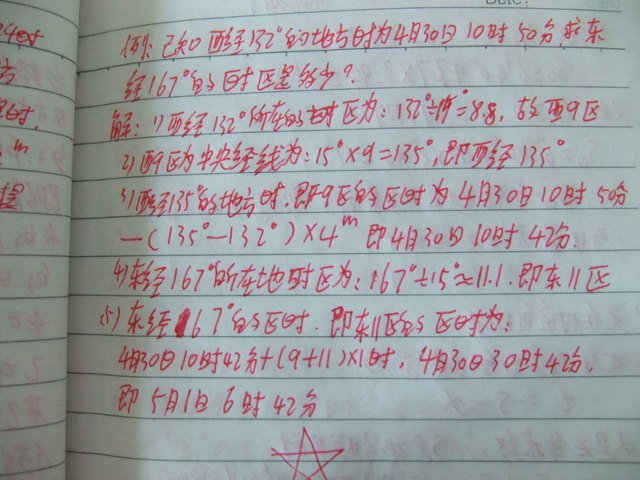 Date:
24时
时,
m
例: 已知西经132°的地方时为4月30日10时50分,求东
经167°的区时是多少?
解: 1) 西经132°所在的时区为: 132°÷15°=8.8, 故西9区
2) 西9区为中央经线为: 15°×9=135°, 即西经135°
3) 西经135°的地方时, 即9区的区时为4月30日10时50分
—(135°—132°)×4m 即4月30日10时42分.
4) 东经167°所在地时区为: 167°÷15°≈11.1. 即东11区
(5) 东经167°的区时. 即东11区的区时为:
4月30日10时42分+(9+11)×1时, 4月30日30时42分,
即5月1日6时42分